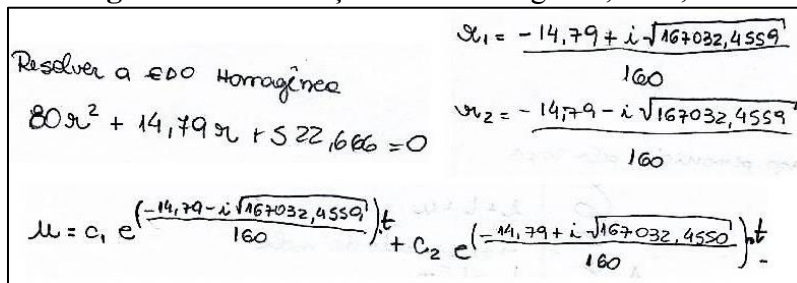 Resolver a EDO Homogênea
80r² + 14,79r + 522,666 = 0
r₁ = -14,79 + i √167032,4559 / 160
r₂ = -14,79 - i √167032,4559 / 160
u = c₁ e^(-14,79 - i √167032,4559 / 160).t + c₂ e^(-14,79 + i √167032,4550 / 160).t